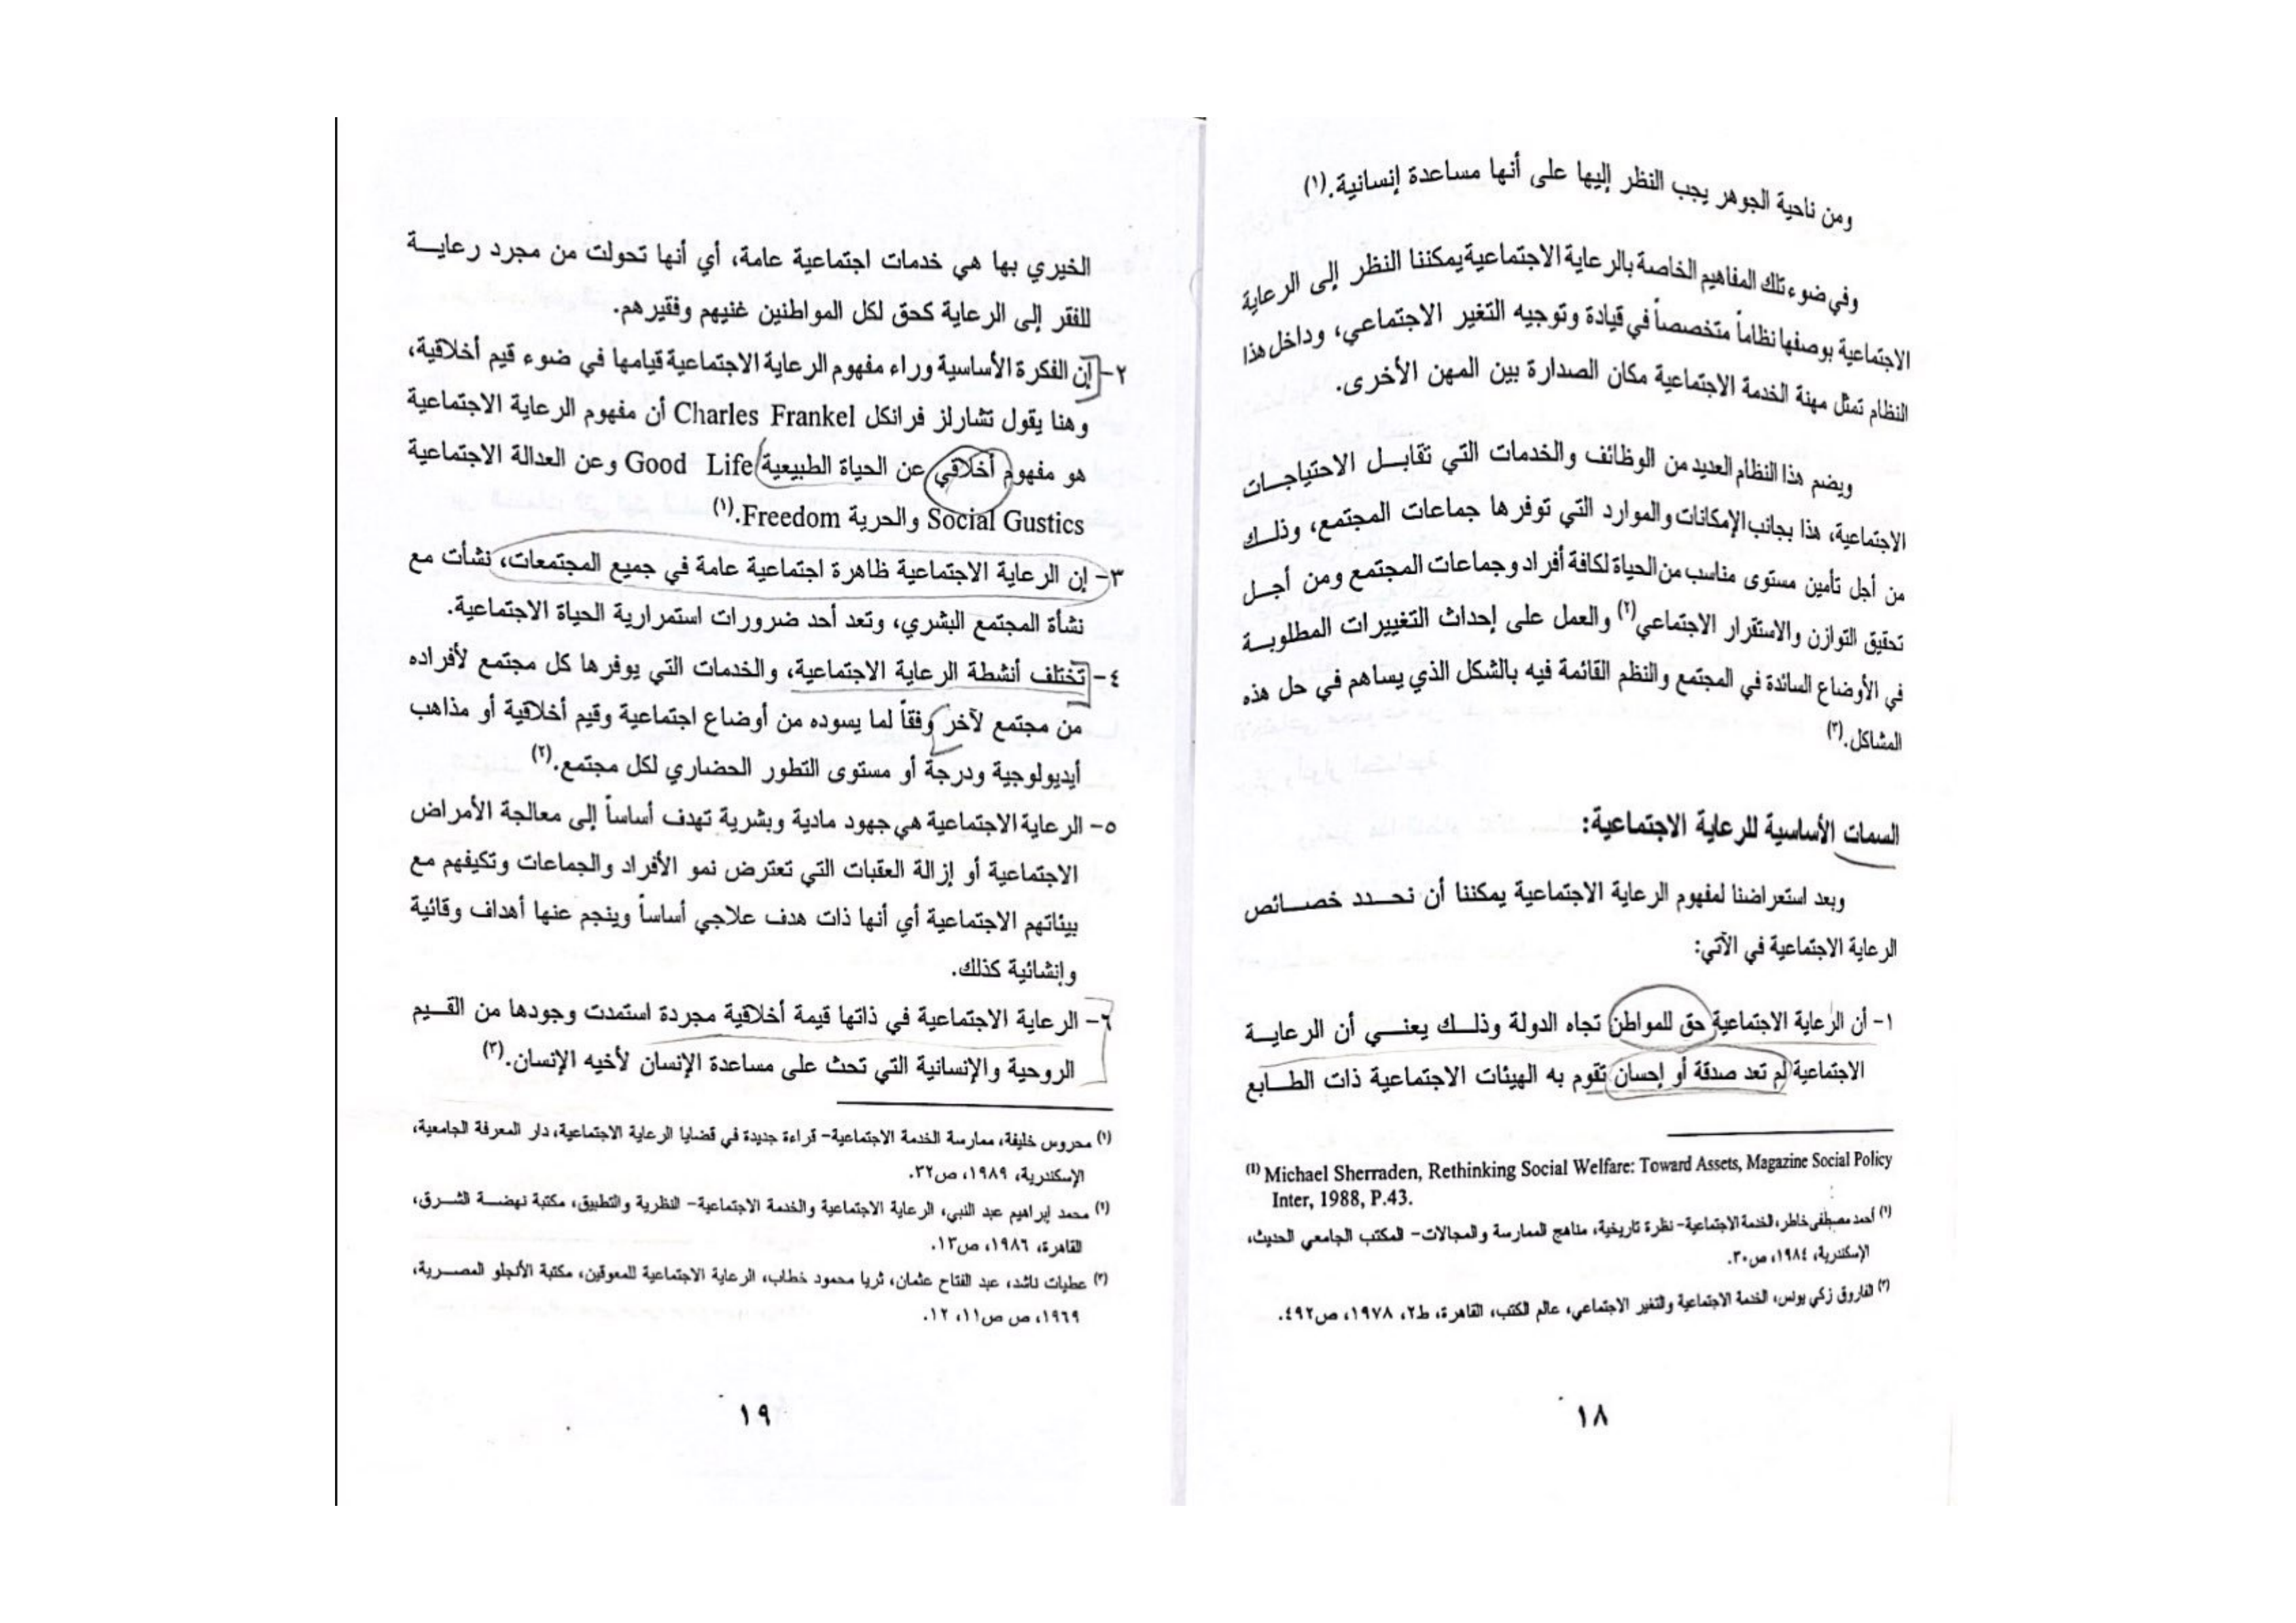 ومن ناحية الجوهر يجب النظر إليها على أنها مساعدة إنسانية.(١)
وفي ضوء تلك المفاهيم الخاصة بالرعاية الاجتماعية يمكننا النظر إلى الرعاية
الاجتماعية بوصفها نظاماً متخصصاً في قيادة وتوجيه التغير الاجتماعي، وداخل هذا
النظام تمثل مهنة الخدمة الاجتماعية مكان الصدارة بين المهن الأخرى.
ويضم هذا النظام العديد من الوظائف والخدمات التي تقابل الاحتياجات
الاجتماعية، هذا بجانب الإمكانات والموارد التي توفرها جماعات المجتمع، وذلك
من أجل تأمين مستوى مناسب من الحياة لكافة أفراد وجماعات المجتمع ومن أجل
تحقيق التوازن والاستقرار الاجتماعي(٢) والعمل على إحداث التغييرات المطلوبة
في الأوضاع السائدة في المجتمع والنظم القائمة فيه بالشكل الذي يساهم في حل هذه
المشاكل.(٣)
السمات الأساسية للرعاية الاجتماعية:
وبعد استعراضنا لمفهوم الرعاية الاجتماعية يمكننا أن نحدد خصائص
الرعاية الاجتماعية في الآتي:
١- أن الرعاية الاجتماعية حق للمواطن تجاه الدولة وذلك يعني أن الرعاية
الاجتماعية لم تعد صدقة أو إحسان تقوم به الهيئات الاجتماعية ذات الطابع
(1) Michael Sherraden, Rethinking Social Welfare: Toward Assets, Magazine Social Policy
Inter, 1988, P.43.
(٢) أحمد مصطفى خاطر، الخدمة الاجتماعية- نظرة تاريخية، مناهج الممارسة والمجالات- المكتب الجامعي الحديث،
الإسكندرية، ١٩٨٤، ص٣٠.
(٣) الفاروق زكي يونس، الخدمة الاجتماعية والتغير الاجتماعي، عالم الكتب، القاهرة، ط٢، ١٩٧٨، ص٤٩٢.
١٨
الخيري بها هي خدمات اجتماعية عامة، أي أنها تحولت من مجرد رعاية
للفقر إلى الرعاية كحق لكل المواطنين غنيهم وفقيرهم.
٢- إن الفكرة الأساسية وراء مفهوم الرعاية الاجتماعية قيامها في ضوء قيم أخلاقية،
وهنا يقول تشارلز فرانكل Charles Frankel أن مفهوم الرعاية الاجتماعية
هو مفهوم أخلاقي عن الحياة الطبيعية Good Life وعن العدالة الاجتماعية
Social Gustics والحرية Freedom.(١)
٣- إن الرعاية الاجتماعية ظاهرة اجتماعية عامة في جميع المجتمعات، نشأت مع
نشأة المجتمع البشري، وتعد أحد ضرورات استمرارية الحياة الاجتماعية.
٤- تختلف أنشطة الرعاية الاجتماعية، والخدمات التي يوفرها كل مجتمع لأفراده
من مجتمع لآخر وفقاً لما يسوده من أوضاع اجتماعية وقيم أخلاقية أو مذاهب
أيديولوجية ودرجة أو مستوى التطور الحضاري لكل مجتمع.(٢)
٥- الرعاية الاجتماعية هي جهود مادية وبشرية تهدف أساساً إلى معالجة الأمراض
الاجتماعية أو إزالة العقبات التي تعترض نمو الأفراد والجماعات وتكيفهم مع
بيئاتهم الاجتماعية أي أنها ذات هدف علاجي أساساً وينجم عنها أهداف وقائية
وإنشائية كذلك.
٦- الرعاية الاجتماعية في ذاتها قيمة أخلاقية مجردة استمدت وجودها من القيم
الروحية والإنسانية التي تحث على مساعدة الإنسان لأخيه الإنسان.(٣)
(١) محروس خليفة، ممارسة الخدمة الاجتماعية- قراءة جديدة في قضايا الرعاية الاجتماعية، دار المعرفة الجامعية،
الإسكندرية، ١٩٨٩، ص٣٢.
(٢) محمد إبراهيم عبد النبي، الرعاية الاجتماعية والخدمة الاجتماعية- النظرية والتطبيق، مكتبة نهضة الشرق،
القاهرة، ١٩٨٦، ص١٣.
(٣) عطيات ناشد، عبد الفتاح عثمان، ثريا محمود خطاب، الرعاية الاجتماعية للمعوقين، مكتبة الأنجلو المصرية،
١٩٦٩، ص ص١١، ١٢.
١٩